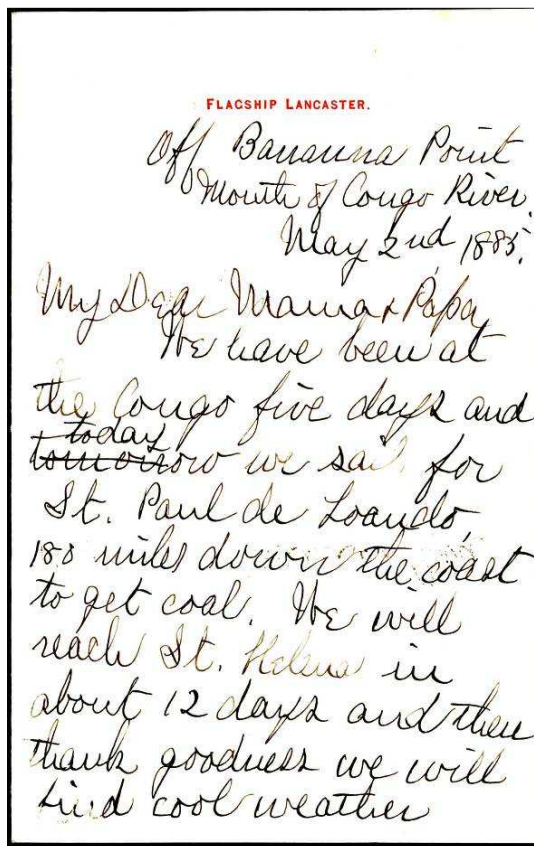 FLAGSHIP LANCASTER.
Off Bananna Point
Mouth of Congo River.
May 2nd 1885.
My Dear Mama & Papa,
We have been at
the Congo five days and
today
tomorrow we sail for
St. Paul de Loando,
180 miles down the coast
to get coal. We will
reach St. Helena in
about 12 days and then
thank goodness we will
find cool weather